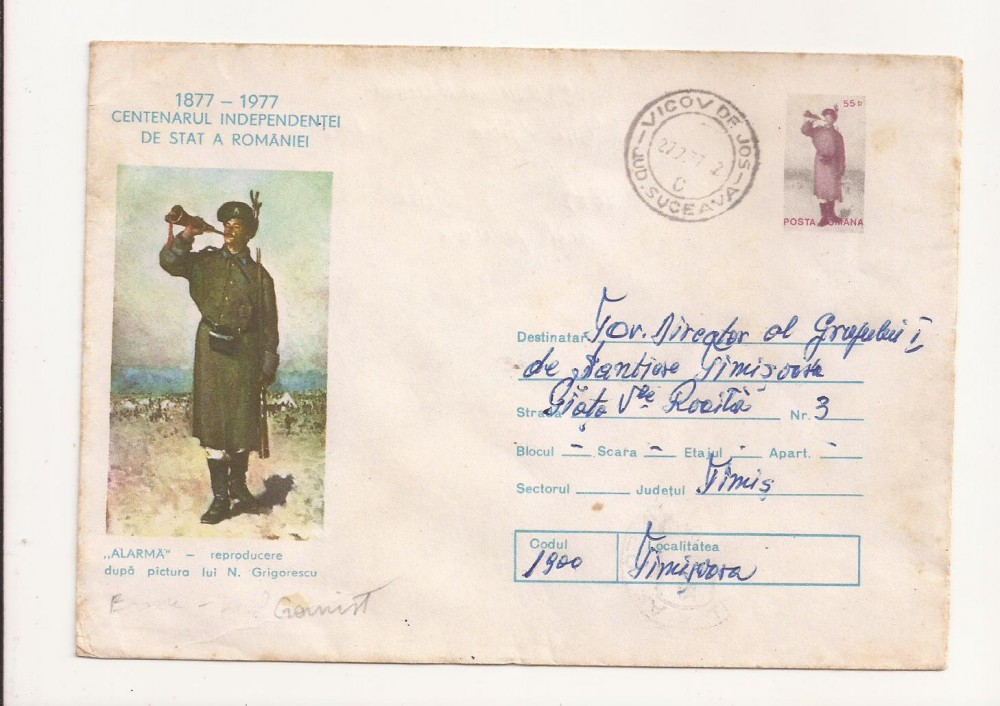 1877 – 1977
CENTENARUL INDEPENDENȚEI
DE STAT A ROMÂNIEI
VICOV DE JOS
JUD. SUCEAVA
55 b
POSTA ROMÂNA
Destinatar Tov. Director al Grupului I
de Șantiere Timișoara
Strada Piața V.le Roaită Nr. 3
Blocul – Scara – Etajul – Apart. –
Sectorul Județul Timiș
Codul Localitatea
1900 Timișoara
„ALARMĂ" – reproducere
după pictura lui N. Grigorescu